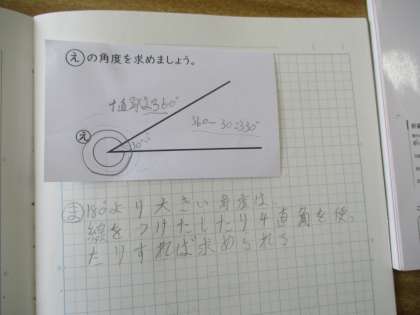 えの角度を求めましょう。
4直角は360°
360-30=330°
え
30°
ま 180°より大きい角度は、
線をつけたしたり4直角を使っ
たりすれば求められる